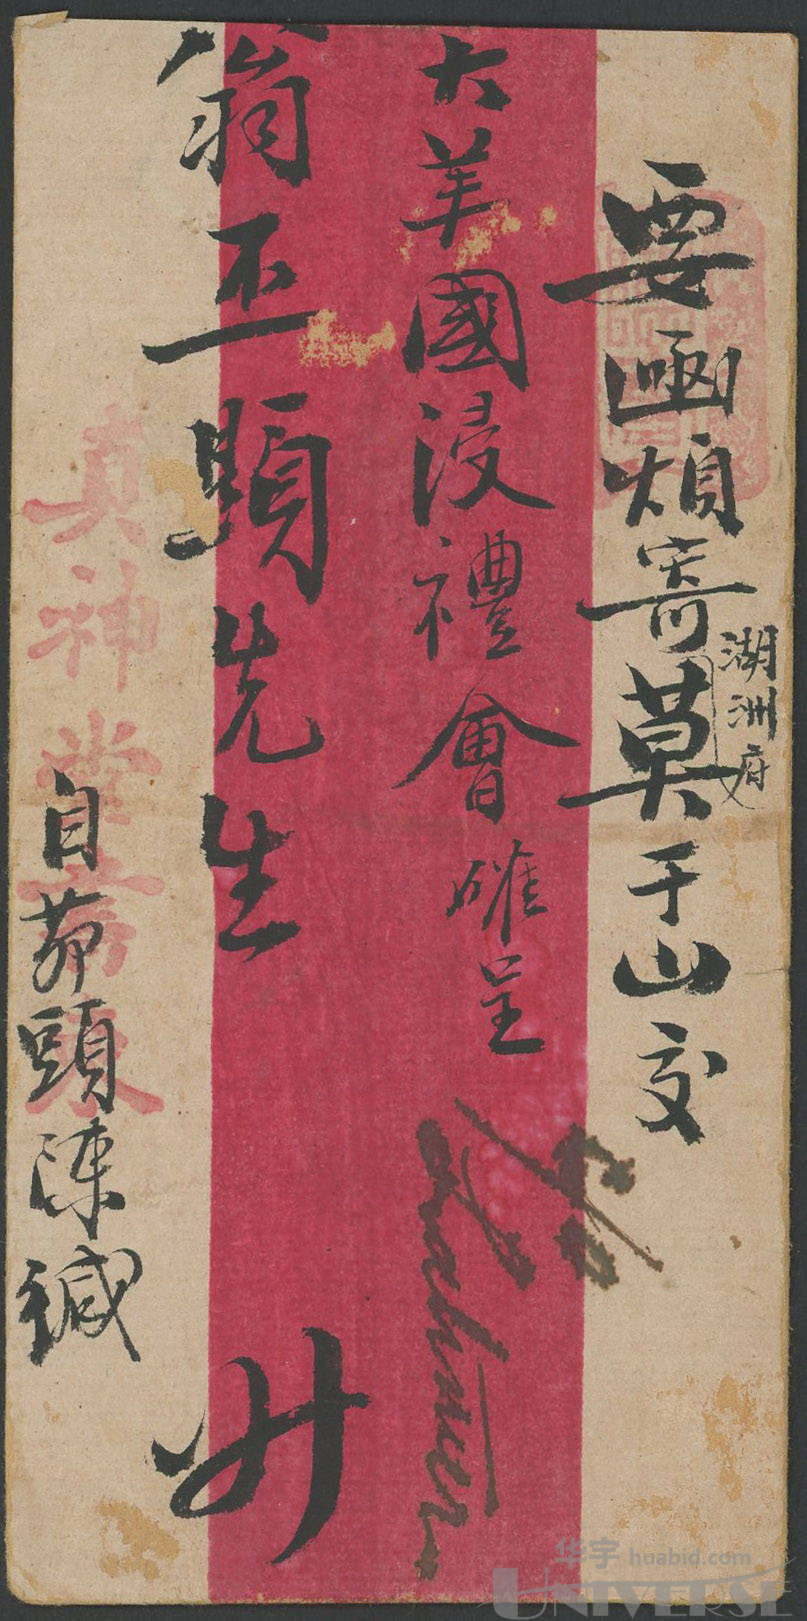 湖洲府
要函煩寄莫于山交
大美國浸禮會確呈
翁丕顕先生 升
真神堂
自茆頭陳緘
华宇 huabid.com
UNIVERSE